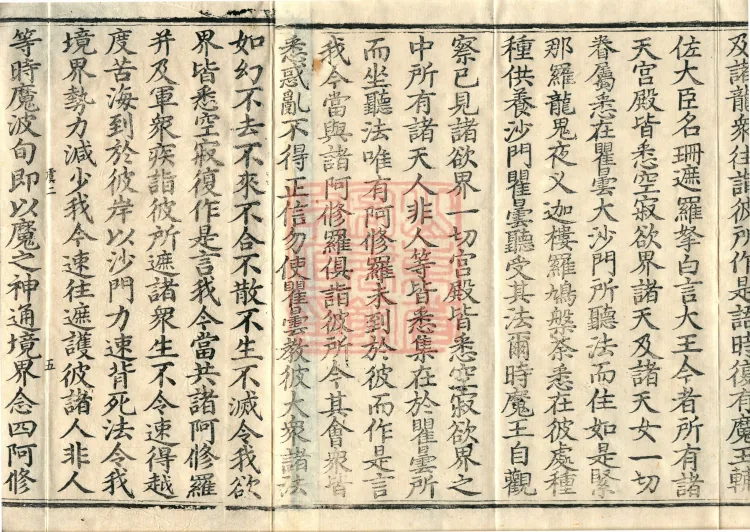 及諸龍衆往詣彼所作是語時復有魔王輔
佐大臣名珊遮羅拏白言大王今者所有諸
天宮殿皆悉空寂欲界諸天及諸天女一切
眷屬悉在瞿曇大沙門所聽法而住如是緊
那羅龍鬼夜叉迦樓羅鳩槃茶悉在彼處種
種供養沙門瞿曇聽受其法爾時魔王自觀
察已見諸欲界一切宮殿皆悉空寂欲界之
中所有諸天人非人等皆悉集在於瞿曇所
而坐聽法唯有阿修羅未到於彼而作是言
我今當與諸阿修羅俱詣彼所令其會衆皆
悉惑亂不得正信勿使瞿曇教彼大衆諸法
如幻不去不來不合不散不生不滅令我欲
界皆悉空寂復作是言我今當共諸阿修羅
并及軍衆疾詣彼所遮諸衆生不令速得越
度苦海到於彼岸以沙門力速背死法令我
境界勢力減少我今速往遮護彼諸人非人
等時魔波旬即以魔之神通境界念四阿修
二
五